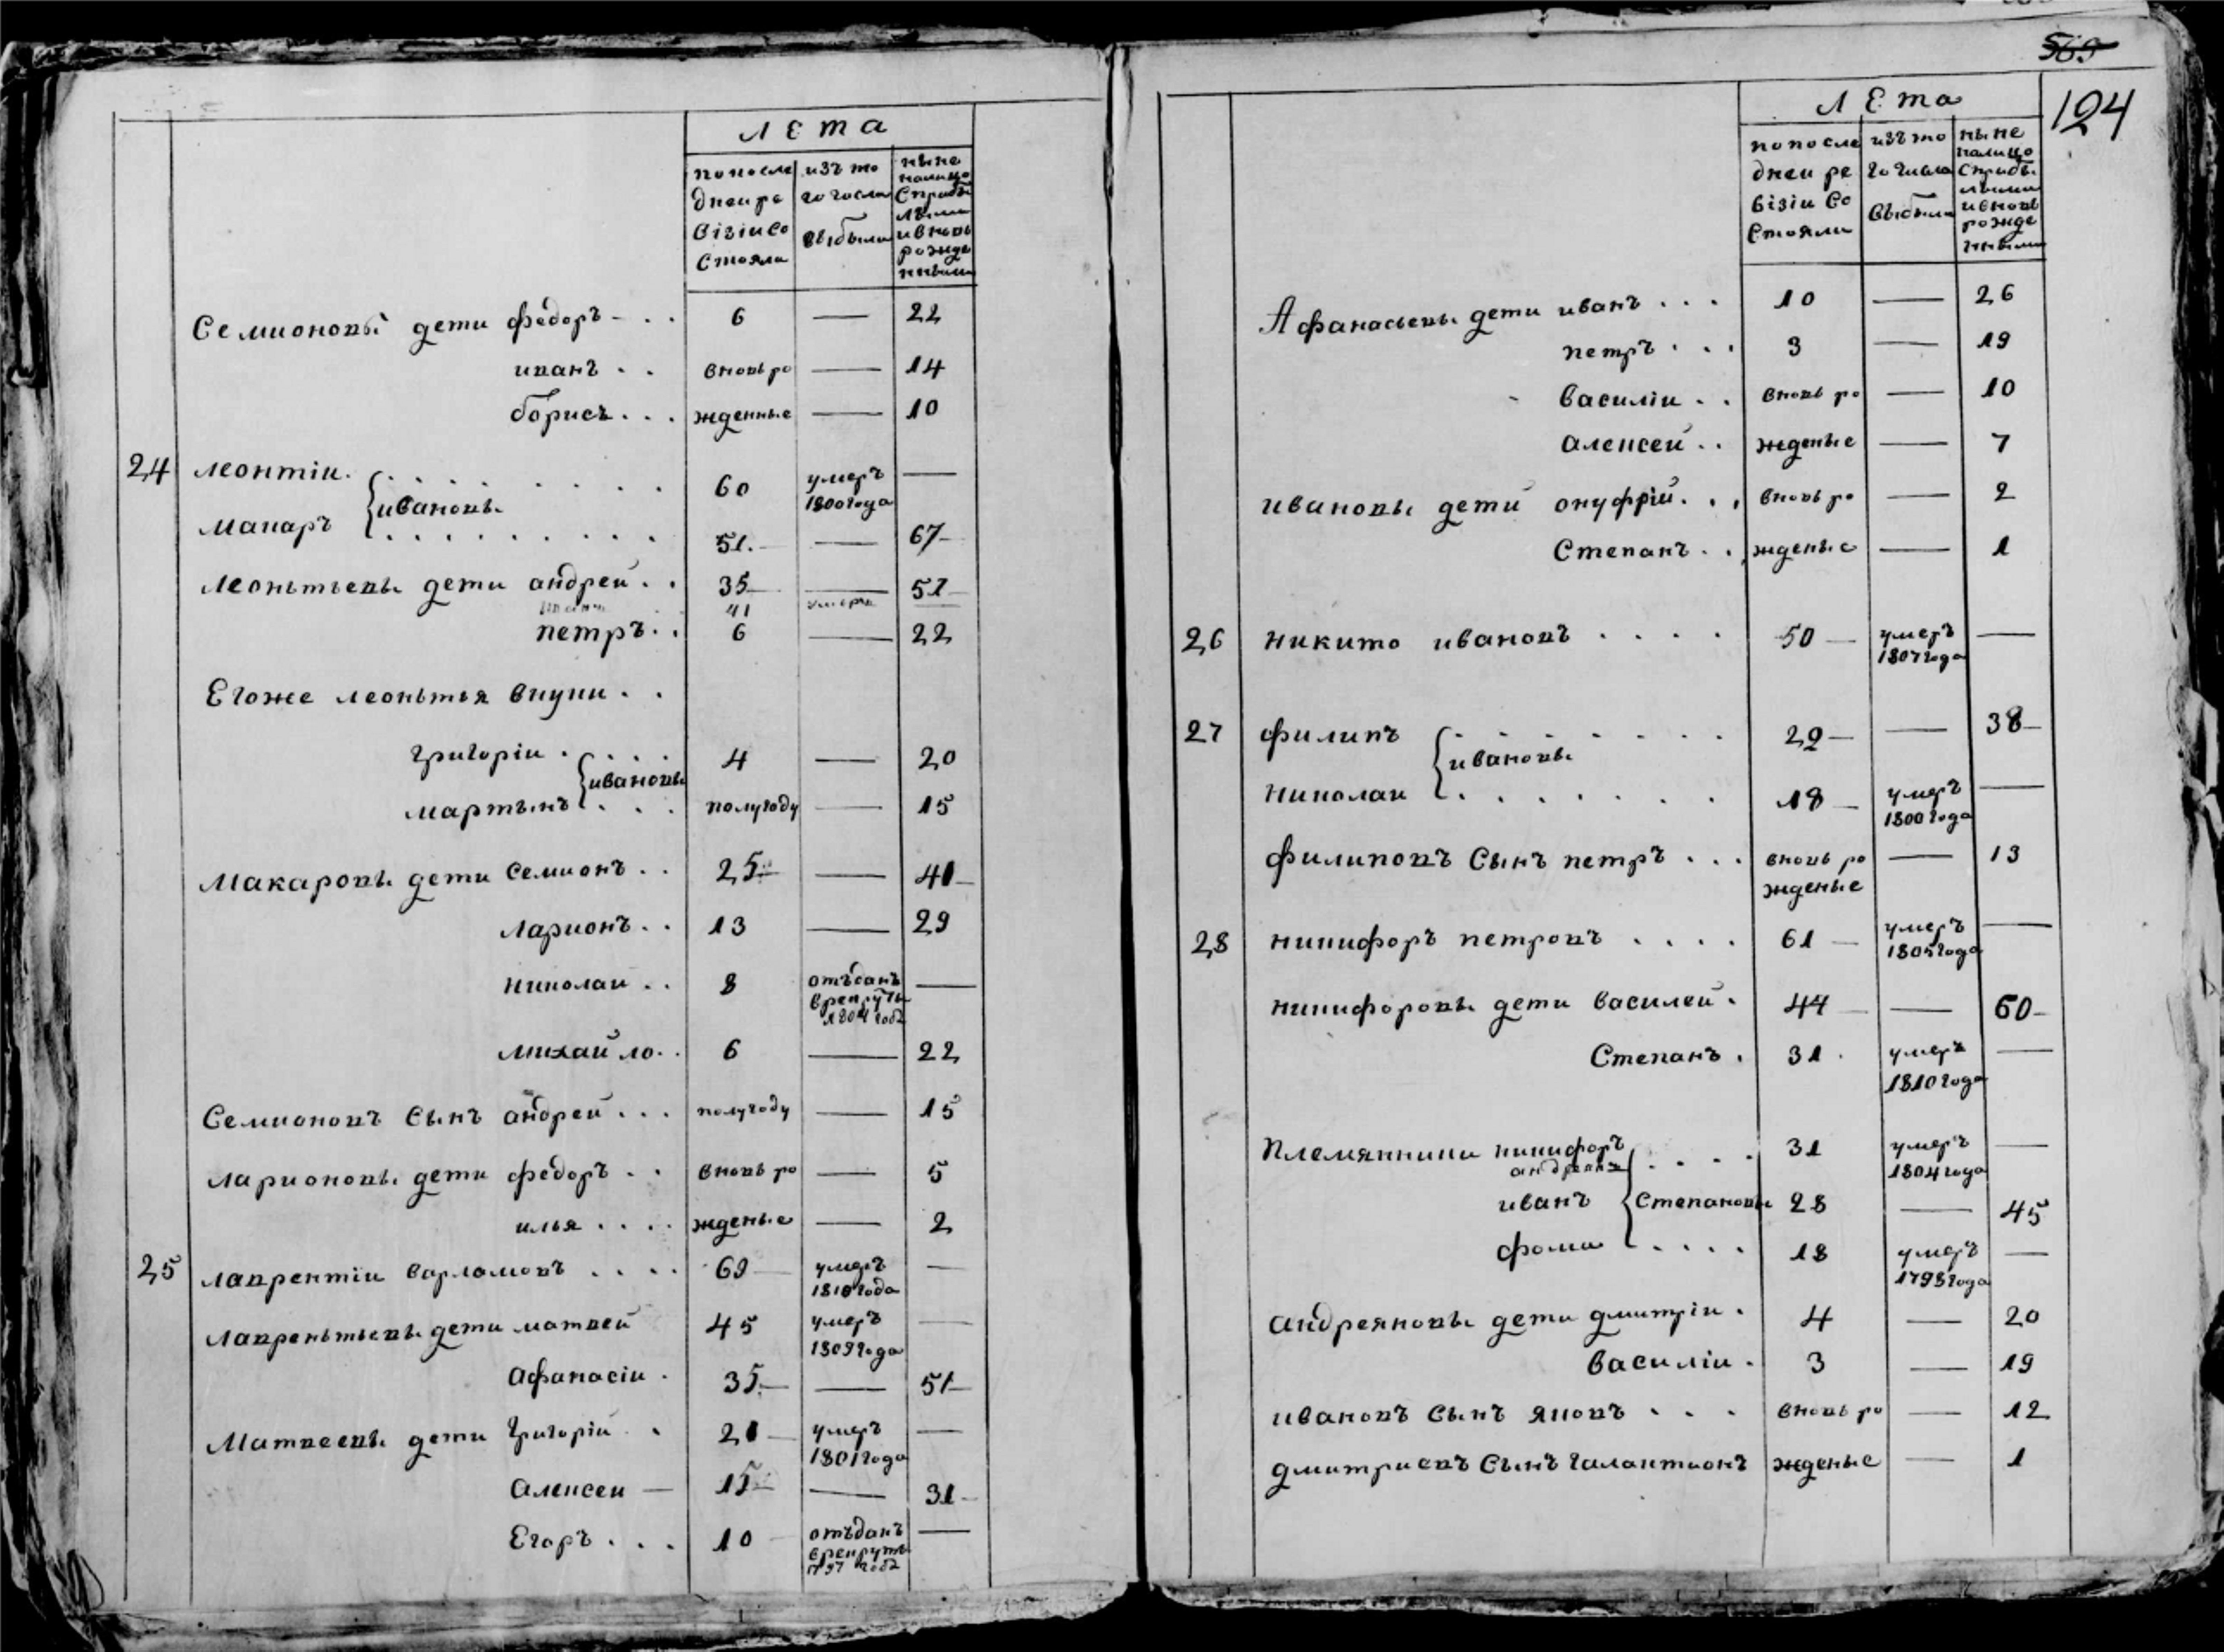 лета
попосле
днеи ре
візіи со
стояла
изъ то
го числа
выбыли
ныне
налицо
сприбы
лыми
ивновь
рожде
нными
Семионовы дети федоръ - . . 6 — 22
иванъ . . вновь ро — 14
борисъ . . . жденные — 10
24 леонтіи . . . . . . . . 60 умеръ 1800 года —
{ивановы
макаръ . . . . . . . . . 51. — 67
леоньтьевы дети андреи . . 35 — 51
иванъ 41 умеръ
петръ . . 6 — 22
Егоже леоньтья внуки . .
григоріи . . . . . 4 — 20
{ивановы
мартынъ . . . полугоду — 15
Макаровы дети семионъ . . 25 — 41
ларионъ . . 13 — 29
николаи . . 8 отъданъ врекруты 1804 года —
михайло . . 6 — 22
Семионовъ сынъ андреи . . . полугоду — 15
ларионовы дети федоръ . . вновь ро — 5
илья . . . . жденые — 2
25 лаврентіи варламовъ . . . . 69 умеръ 1810 года —
лавреньтьевы дети матвеи 45 умеръ 1809 года —
афанасіи . 35 — 51
Матвеевы дети григоріи . 21 умеръ 1801 года —
алексеи — 15 — 31
Егоръ . . . 10 отъданъ врекруты 1797 года —
569
124
лета
попосле
днеи ре
візіи со
стояли
изъ то
го числа
выбыли
ныне
налицо
сприбы
лыми
ивновь
рожде
нными
Афанасьевы дети иванъ . . . 10 — 26
петръ . . . 3 — 19
василіи . . вновь ро — 10
алексеи . . жденые — 7
ивановы дети онуфріи . . . вновь ро — 2
степанъ . . . жденые — 1
26 никито ивановъ . . . . 50 умеръ 1807 года —
27 филипъ . . . . . . . 22 — 38
{ивановы
николаи . . . . . . . 18 умеръ 1800 года —
филиповъ сынъ петръ . . . вновь ро — 13
жденые
28 никифоръ петровъ . . . . 61 умеръ 1805 года —
никифоровы дети василеи . 44 — 60
степанъ . 31 умеръ 1810 года —
племянники никифоръ . . . . 31 умеръ 1804 года —
андреянъ
иванъ {степановы 28 — 45
фома . . . . 18 умеръ 1798 года —
андреяновы дети дмитріи . 4 — 20
василіи . 3 — 19
ивановъ сынъ яковъ . . . вновь ро — 12
дмитриевъ сынъ галантионъ жденые — 1